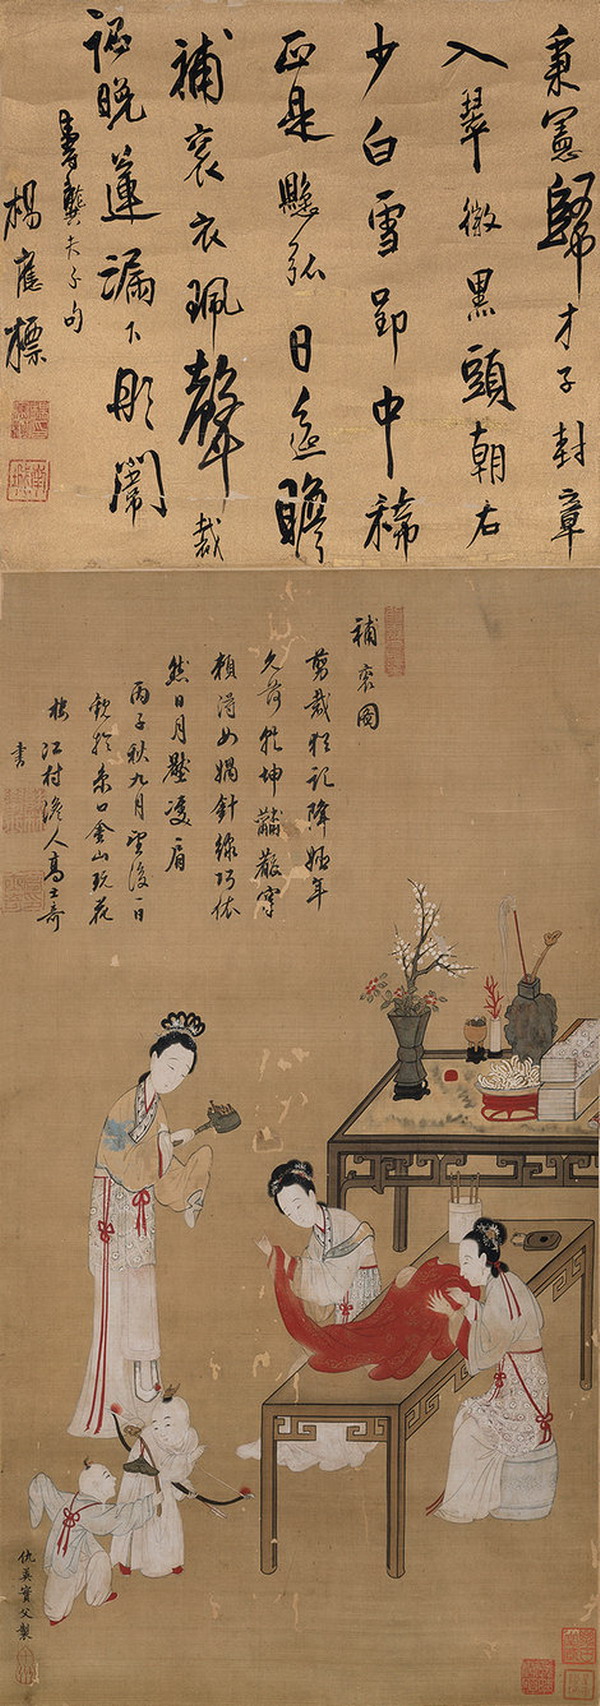 秉憲歸才子封章
入翠微黑頭朝右
少白雪郢中稀
正是懸弧日遙瞻
補袞衣珮聲裁
詔晚蓮漏下彤闈
書龔夫子句
楊應標
補袞圖
剪裁猶記降年
久荷乾坤黼黻穿
賴得女媧針線巧依
然日月壓雙肩
丙子秋九月望後一日
觀於京口金山玩花
樓江村澹人高士奇
書
仇英實父製